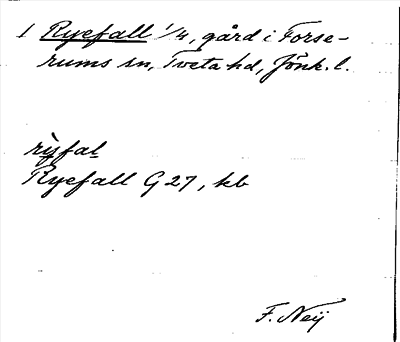 1 Ryefall 1/4, gård i Forse-
rums sn, Tveta hd, Jönk. l.
rỳfal
Ryefall G 27, kb
F. Neij